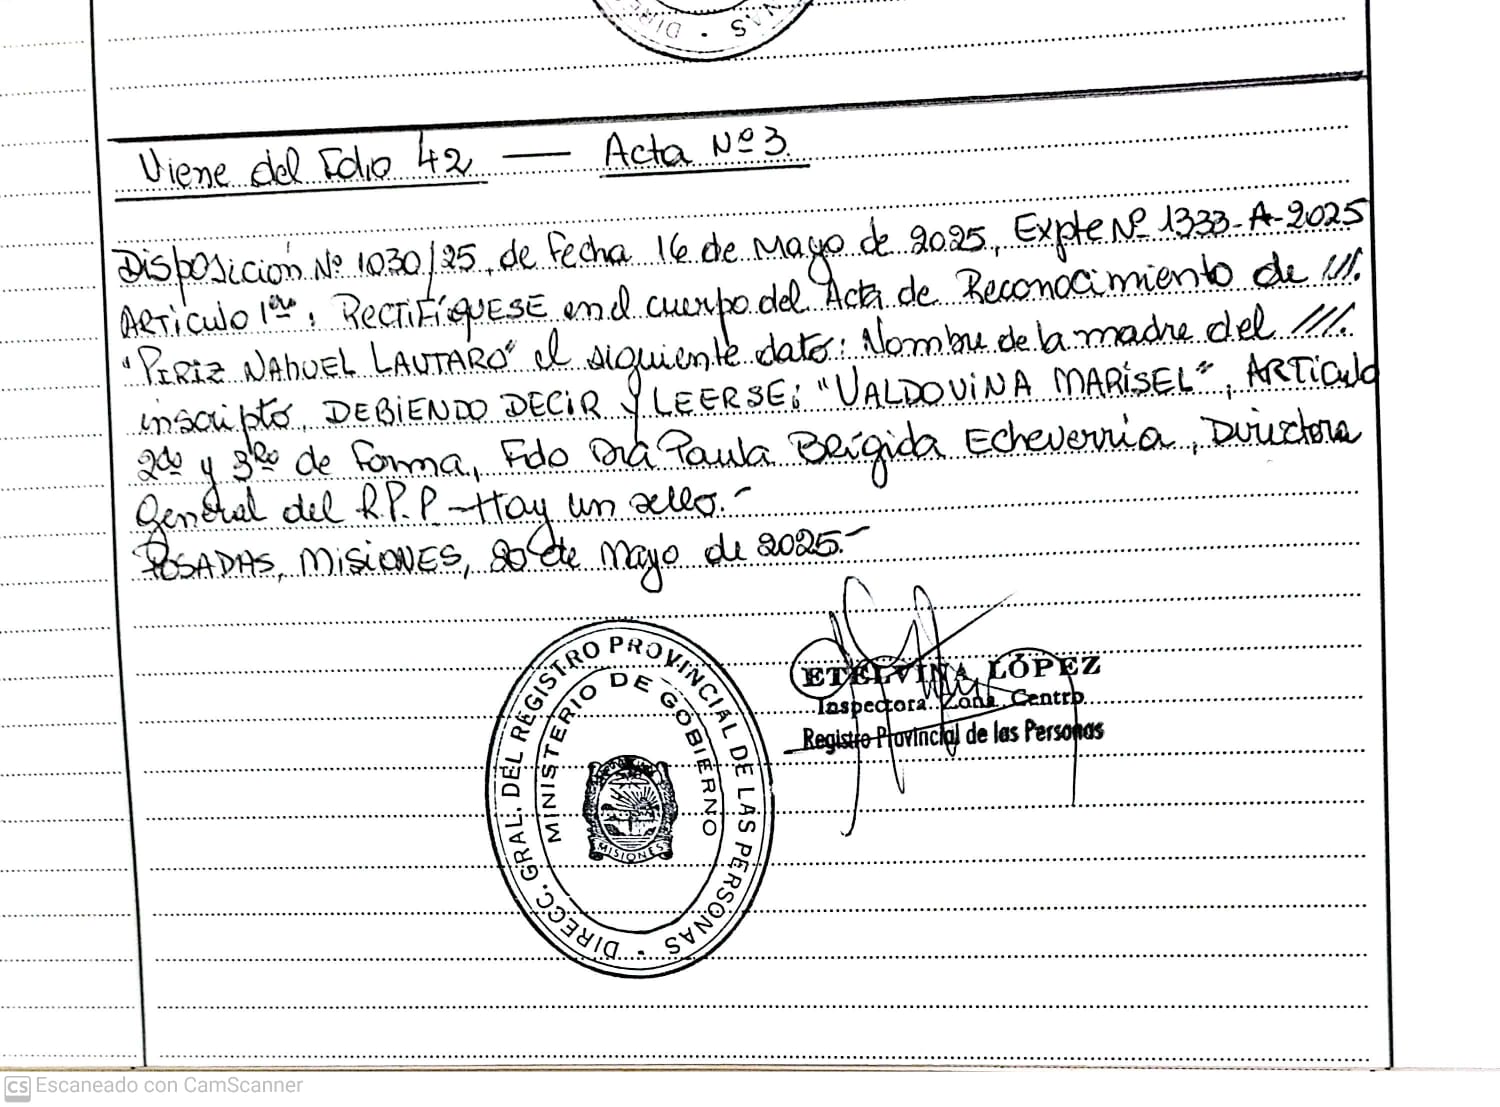 DIRE · NAS
Viene del Folio 42 — Acta Nº 3.
Disposición Nº 1030/25, de Fecha 16 de Mayo de 2025, Expte Nº 1333-A-2025
ARTículo 1ero, RECTIFÍQUESE en el cuerpo del Acta de Reconocimiento de ///.
"PIRIZ NAHUEL LAUTARO" el siguiente dato: Nombre de la madre del ////.
inscripto, DEBIENDO DECIR y LEERSE: "VALDOVINA MARISEL", ARTículo
2do y 3ro de Forma, Fdo Dra Paula Brígida Echeverría, Directora
General del R.P.P - Hay un sello.-
POSADAS, MISIONES, 20 de Mayo de 2025.-
DIRECC. GRAL. DEL REGISTRO PROVINCIAL DE LAS PERSONAS
MINISTERIO DE GOBIERNO
MISIONES
ETELVINA LÓPEZ
Inspectora Zona Centro
Registro Provincial de las Personas
CS Escaneado con CamScanner